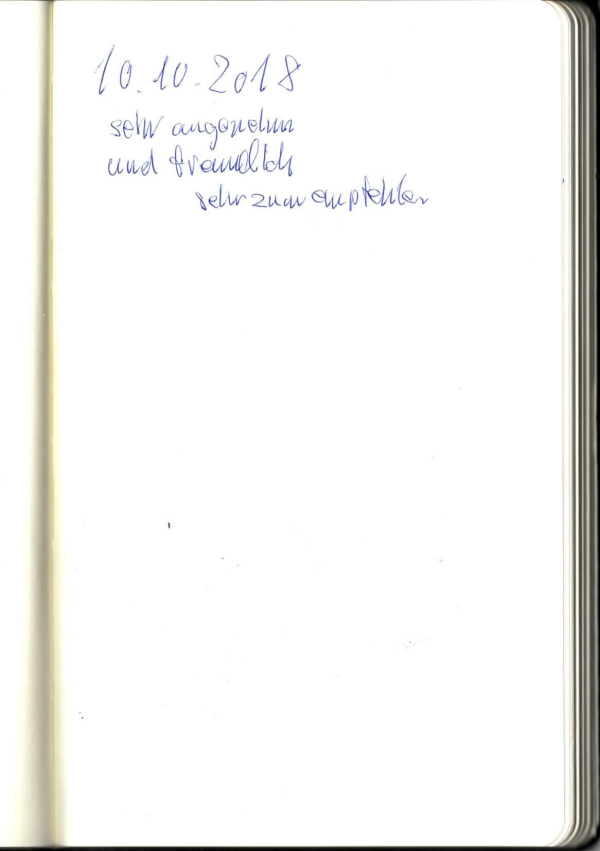 10.10.2018
sehr angenehm
und freundlich
sehr zum empfehlen